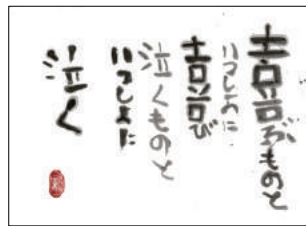 喜ぶものと
いつしよに
喜び
泣くものと
いつしよに
泣く